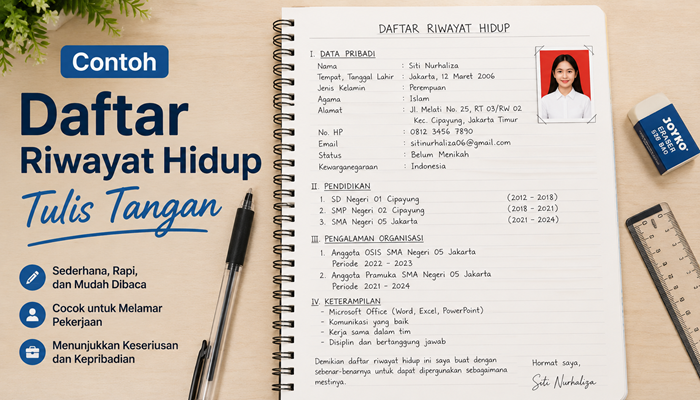 Contoh
Daftar
Riwayat Hidup
Tulis Tangan
Sederhana, Rapi,
dan Mudah Dibaca
Cocok untuk Melamar
Pekerjaan
Menunjukkan Keseriusan
dan Kepribadian
DAFTAR RIWAYAT HIDUP
I. DATA PRIBADI
Nama : Siti Nurhaliza
Tempat, Tanggal Lahir : Jakarta, 12 Maret 2006
Jenis Kelamin : Perempuan
Agama : Islam
Alamat : Jl. Melati No. 25, RT 03/RW 02
Kec. Cipayung, Jakarta Timur
No. HP : 0812 3456 7890
Email : sitinurhaliza06@gmail.com
Status : Belum Menikah
Kewarganegaraan : Indonesia
II. PENDIDIKAN
1. SD Negeri 01 Cipayung (2012 - 2018)
2. SMP Negeri 02 Cipayung (2018 - 2021)
3. SMA Negeri 05 Jakarta (2021 - 2024)
III. PENGALAMAN ORGANISASI
1. Anggota OSIS SMA Negeri 05 Jakarta
Periode 2022 - 2023
2. Anggota Pramuka SMA Negeri 05 Jakarta
Periode 2021 - 2024
IV. KETERAMPILAN
- Microsoft Office (Word, Excel, PowerPoint)
- Komunikasi yang baik
- Kerja sama dalam tim
- Disiplin dan bertanggung jawab
Demikian daftar riwayat hidup ini saya buat dengan
sebenar-benarnya untuk dapat dipergunakan sebagaimana
mestinya.
Hormat saya,
Siti Nurhaliza
JOYKO
ERASER
526 B40